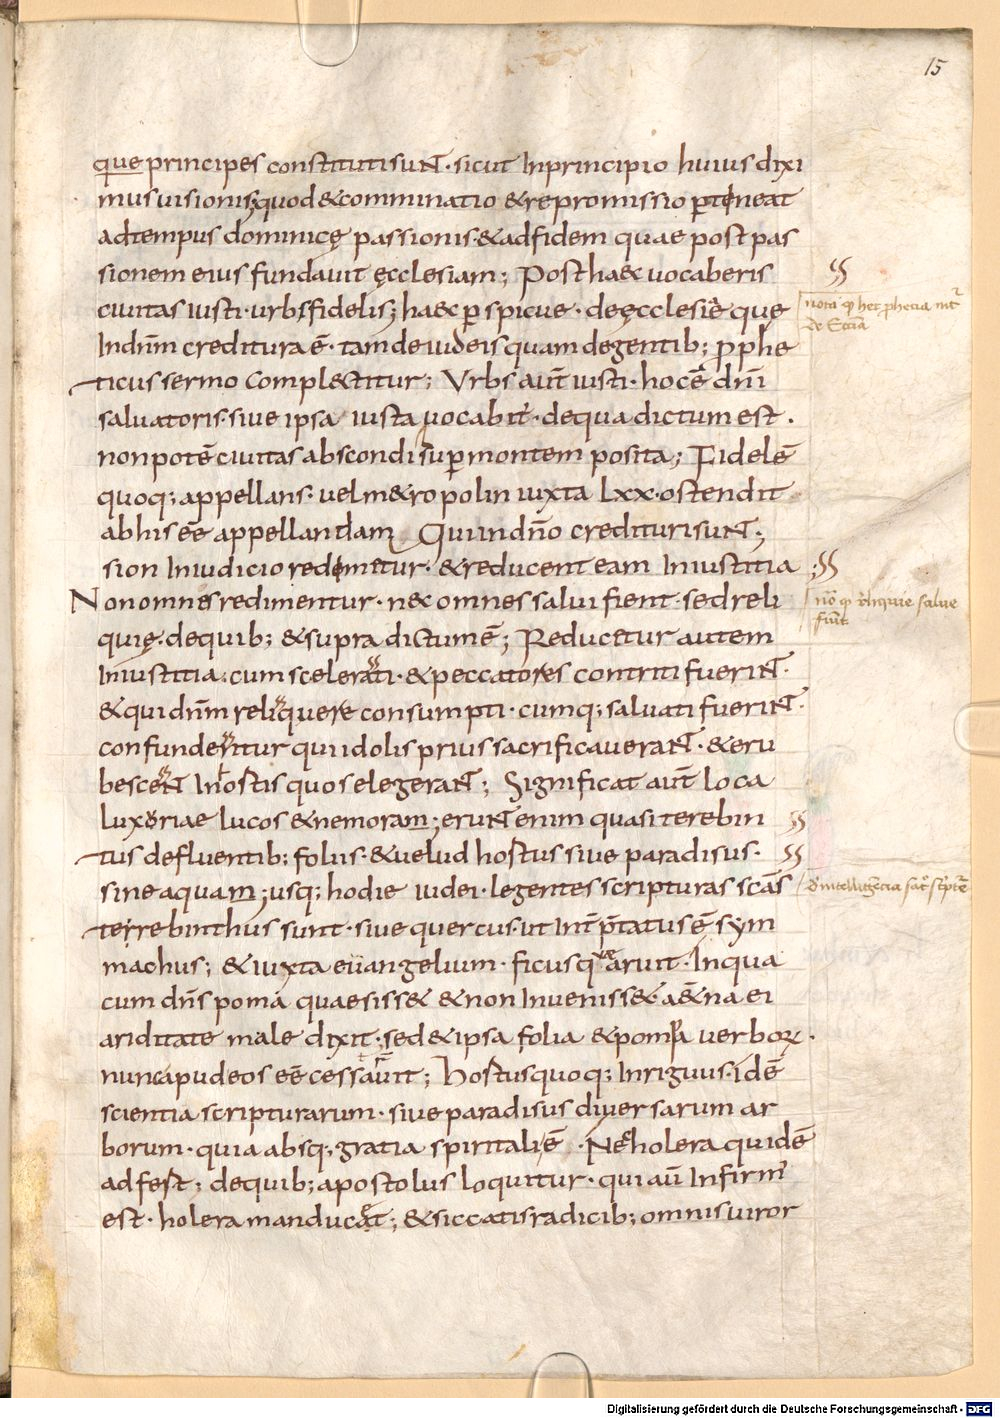 15
que principes constituti sunt · sicut In principio huius dixi
mus uisionis; quod & comminatio & repromissio pertineat
ad tempus dominicę passionis · & ad fidem quae post pas
sionem eius fundauit ęcclesiam; Post haec uocaberis
ciuitas iusti · urbs fidelis; haec p spicue · de ęcclesie que
In dnm creditura ē · tam de iudeis quam de gentib; pphe
ticus sermo complectitur; Vrbs aut̄ iusti · hoc ē dn̄i
saluatoris · siue ipsa iusta uocabit̄ · de qua dictum est ·
non potē ciuitas abscondi sup montem posita; Fidelē
quoq; appellans · uel m&ropolin iuxta Lxx · ostendit
ab his eē appellandam Qui in dn̄o credituri sunt;
sion In iudicio redimetur · & reducent eam In iustitia
Non omnes redimentur · nec omnes salui fient · sed reli
quię · de quib; & supra dictum ē; Reducetur autem
In iustitia · cum scelerati · & peccatores contriti fuerint ·
& qui dnm reliquere consumpti · cumq; saluati fuerint ·
confundentur qui idolis prius sacrificauerant · & eru
bescent In hostis quos elegerant; Significat aut̄ loca
luxoriae lucos & nemoram; erunt enim quasi terebin
tus defluentib; foliis · & uelud hostus siue paradisus ·
sine aquam; usq; hodie iudei · legentes scripturas scas
terrebinthus sunt · siue quercus · ut Int̄ p̄tatus ē sym
machus; & iuxta euangelium · ficus quae aruit · In qua
cum dn̄s poma quaesiss& & non Inueniss& · a&na ei
ariditate male dixit · sed & ipsa folia & pompa uerborū ·
nunc apud eos eē cessauit; Hostus quoq; Inriguus · idē
scientia scripturarum · siue paradisus diuersarum ar
borum · quia absq; gratia spiritali ē · Nec holera quidē
ad fest; de quib; apostolus loquitur · qui aū Infirm̄
est · holera manducat; & siccatis radicib; omnis uiror
nota qp hec phetia int̄r
de Eccīa
nō qp reliquie salue
fiunt
intelligentia sac̄ scptē
Digitalisierung gefördert durch die Deutsche Forschungsgemeinschaft - DFG